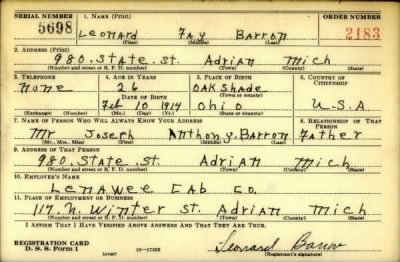 SERIAL NUMBER 1. NAME (Print) ORDER NUMBER
5698 Leonard Fay Barron 2183
(First) (Middle) (Last)
2. ADDRESS (Print)
980. State. St. Adrian Mich
(Number and street or R. F. D. number) (Town) (County) (State)
3. TELEPHONE 4. AGE IN YEARS 5. PLACE OF BIRTH 6. COUNTRY OF CITIZENSHIP
None 26 Oak Shade
DATE OF BIRTH (Town or county)
Feb 10 1914 Ohio U.S.A
(Exchange) (Number) (Mo.) (Day) (Yr.) (State or country)
7. NAME OF PERSON WHO WILL ALWAYS KNOW YOUR ADDRESS 8. RELATIONSHIP OF THAT PERSON
Mr Joseph Anthony. Barron Father
(Mr., Mrs., Miss) (First) (Middle) (Last)
9. ADDRESS OF THAT PERSON
980. State. St. Adrian Mich
(Number and street or R. F. D. number) (Town) (County) (State)
10. EMPLOYER'S NAME
Lenawee Cab Co.
11. PLACE OF EMPLOYMENT OR BUSINESS
117. N. Winter St. Adrian Mich
(Number and street or R. F. D. number) (Town) (County) (State)
I AFFIRM THAT I HAVE VERIFIED ABOVE ANSWERS AND THAT THEY ARE TRUE.
REGISTRATION CARD
D. S. S. Form 1 (over) Leonard Barron
(Registrant's signature)